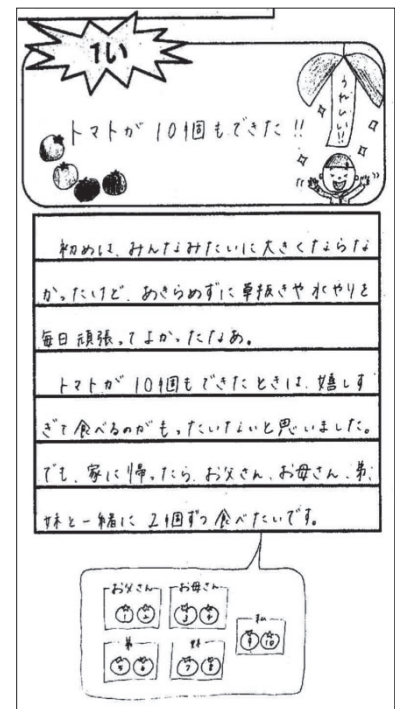 1い
トマトが10個もできた!!
うれしい!!
初めは、みんなみたいに大きくならな
かったけど、あきらめずに草抜きや水やりを
毎日頑張ってよかったなあ。
トマトが10個もできたときは、嬉しす
ぎて食べるのがもったいないと思いました。
でも、家に帰ったら、お父さん、お母さん、弟、
妹と一緒に2個ずつ食べたいです。
お父さん
お母さん
私
1 2
3 4
9 10
弟
妹
5 6
7 8